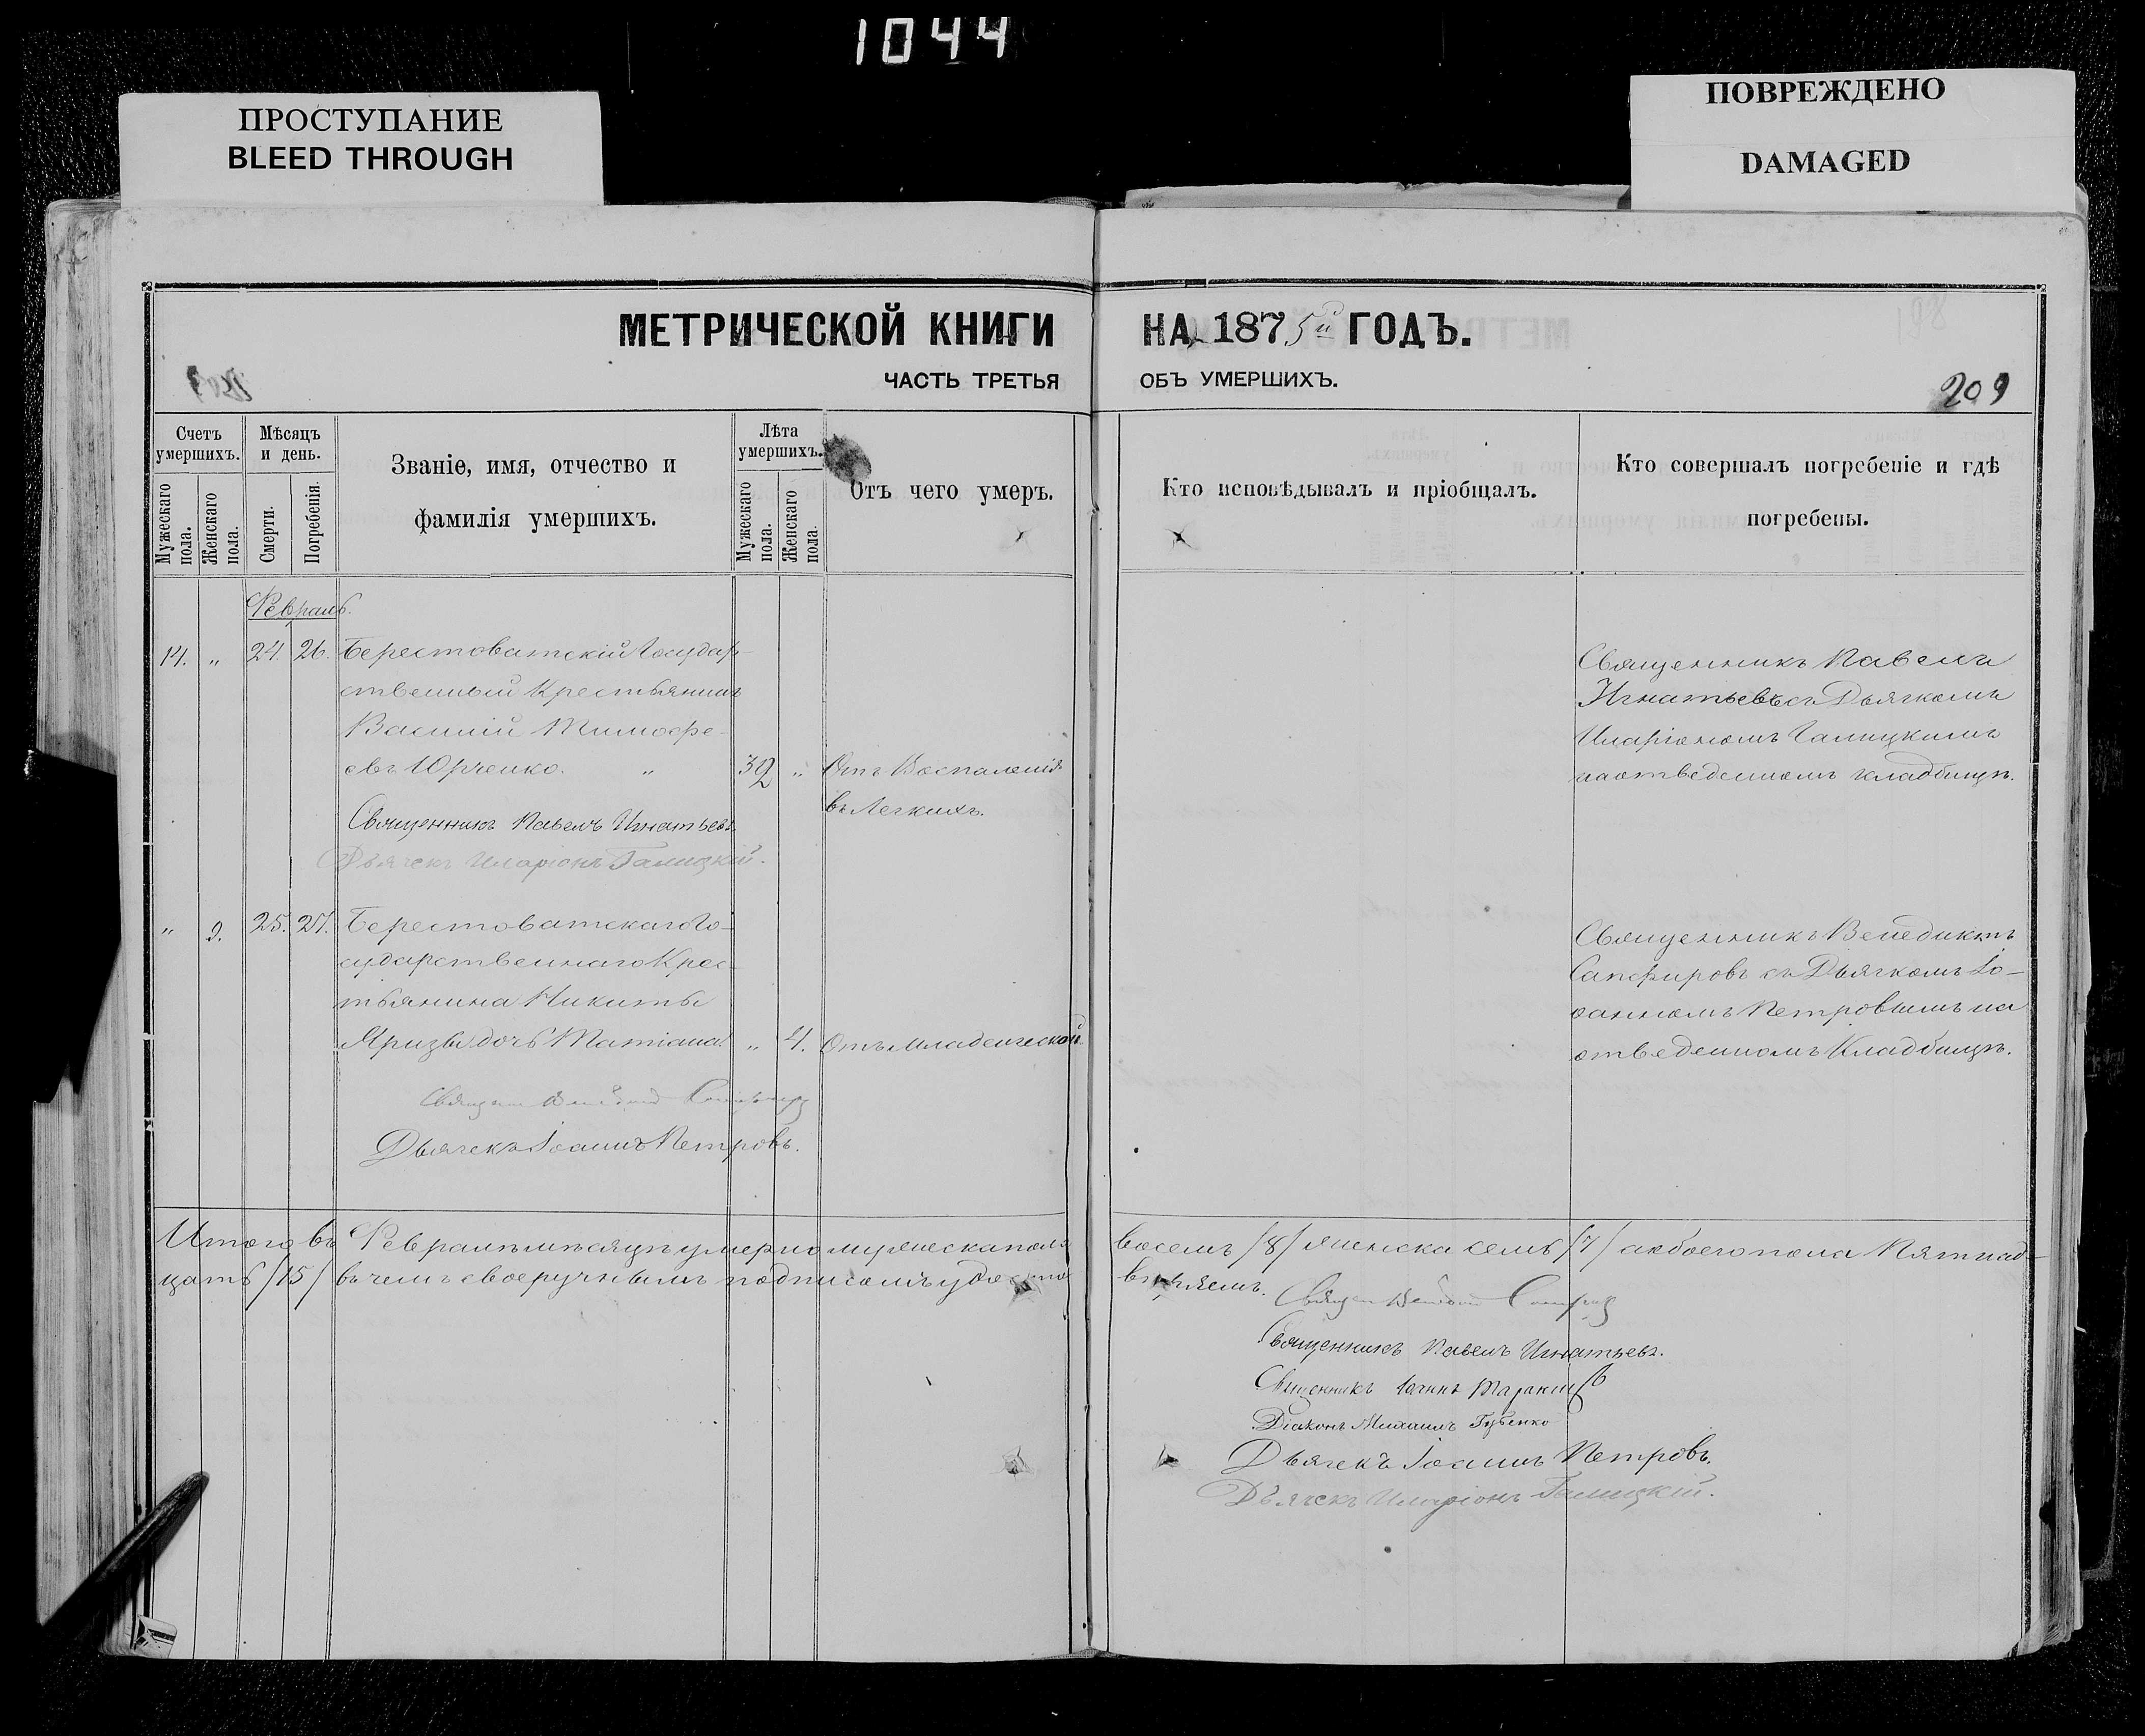 1044
ПРОСТУПАНИЕ
BLEED THROUGH
ПОВРЕЖДЕНО
DAMAGED
МЕТРИЧЕСКОЙ КНИГИ НА 1875й ГОДЪ.
ЧАСТЬ ТРЕТЬЯ ОБЪ УМЕРШИХЪ.
209
Счетъ умершихъ.
Мужескаго пола.
Женскаго пола.
Мѣсяцъ и день.
Смерти.
Погребенія.
Званіе, имя, отчество и
фамилія умершихъ.
Лѣта умершихъ.
Мужескаго пола.
Женскаго пола.
Отъ чего умеръ.
Кто исповѣдывалъ и пріобщалъ.
Кто совершалъ погребеніе и гдѣ
погребены.
Февраль.
14. „ 24. 26. Берестоватскій Государ-
ственный Крестьянинъ
Василій Тимофе-
евъ Юрченко. „ 32 „ Отъ Воспаленія
въ Легкихъ.
Священникъ Павелъ Игнатьевъ
Дьячекъ Иларіонъ Галицкій.
Священникъ Павелъ
Игнатьевъ съ Дьячкомъ
Иларіономъ Галицкимъ
на отведенномъ кладбищѣ.
„ 9. 25. 27. Берестоватскаго Го-
сударственнаго Крес-
тьянина Никиты
Яризы дочь Татіана „ 4. Отъ младенческой
Дьячекъ Іоаннъ Петровъ.
Священникъ Венедиктъ
Сапфировъ съ Дьячкомъ Іо-
оанномъ Петровымъ на
отведенномъ Кладбищѣ.
Итого въ Февралѣ мѣсяцѣ умерло мужеска пола восемь /8/ женска семь /7/ а обоего пола Пятнад-
цать /15/ въ чемъ своеручнымъ подписомъ удосто
вѣряемъ.
Священникъ Павелъ Игнатьевъ.
Священникъ Іоаннъ
Діаконъ Михаилъ Губенко
Дьячекъ Іоаннъ Петровъ.
Дьячекъ Иларіонъ Галицкій.